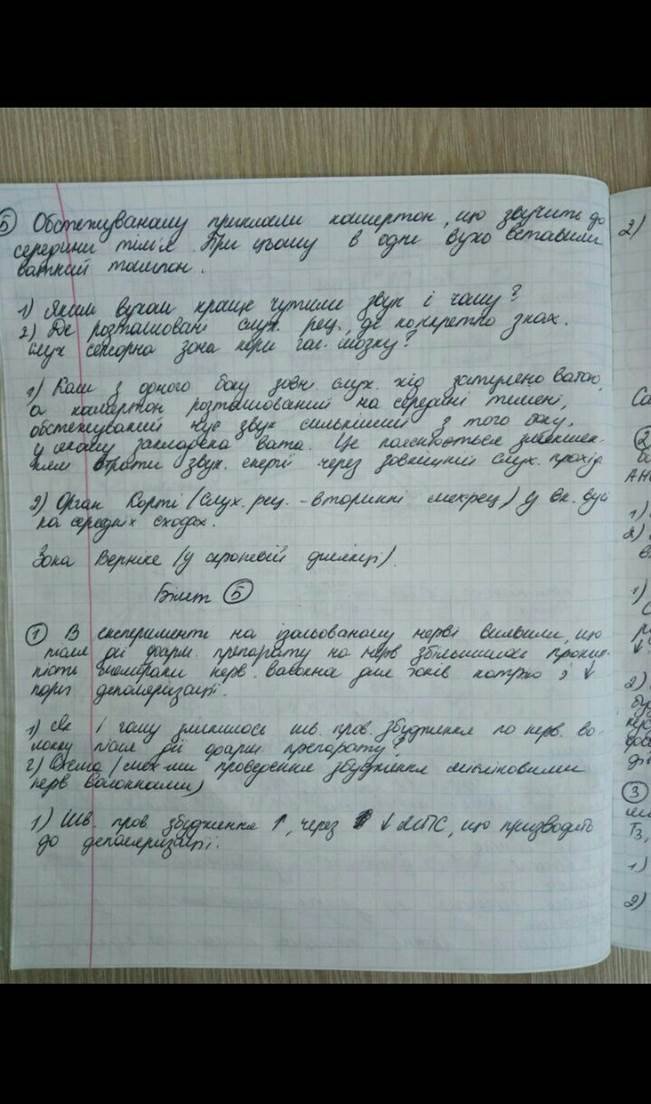 5 Обстежуваному приклали камертон, що звучить до
середини тімія. При цьому в одне вухо вставили
ватний тампон.
1) Яким вухом краще чутили звук і чому?
2) Де розташовані слух. рец., де конкретно знах.
слух сенсорна зона кори гол. мозку?
1) Коли з одного боку зовн. слух. хід затулено ватою,
а камертон розташований на середині тімені,
обстежуваний чує звук сильніший з того боку,
у якому закладена вата. Це пояснюється зменшен-
ням втрати звук. енергії через зовнішній слух. прохід
2) Орган Корти (слух. рец. - вторинні мехрец.) у вн. вусі
на середніх сходах.
Зона Верніке (у скроневій ділянці).
Білет 5
1 В експерименті на ізольованому нерві виявили, що
після дії фарм. препарату на нерв збільшилась проник-
ність мембрани нерв. волокна для іонів натрію і ↓
поріг деполяризації.
1) Як і чому змінилась шв. пров. збудження по нерв. во-
локну після дії фарм препарату?
2) Схема (мех-ми проведення збудження мієліновими
нерв волокнами)
1) Шв. пров. збудження ↑, через ↓ МПС, що призводить
до деполяризації.
2)
2
АН
1)
2)
1)
2)
3
ТЗ,
1)
2)